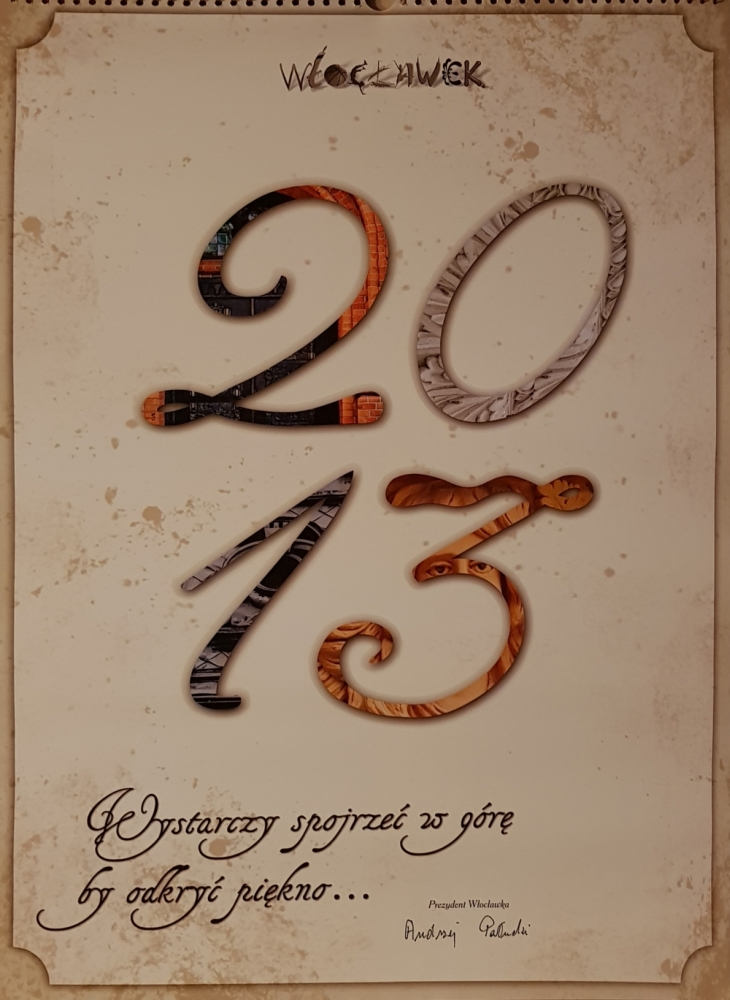 WŁOCŁAWEK
20
13
Wystarczy spojrzeć w górę
by odkryć piękno...
Prezydent Włocławka
Andrzej Pałucki